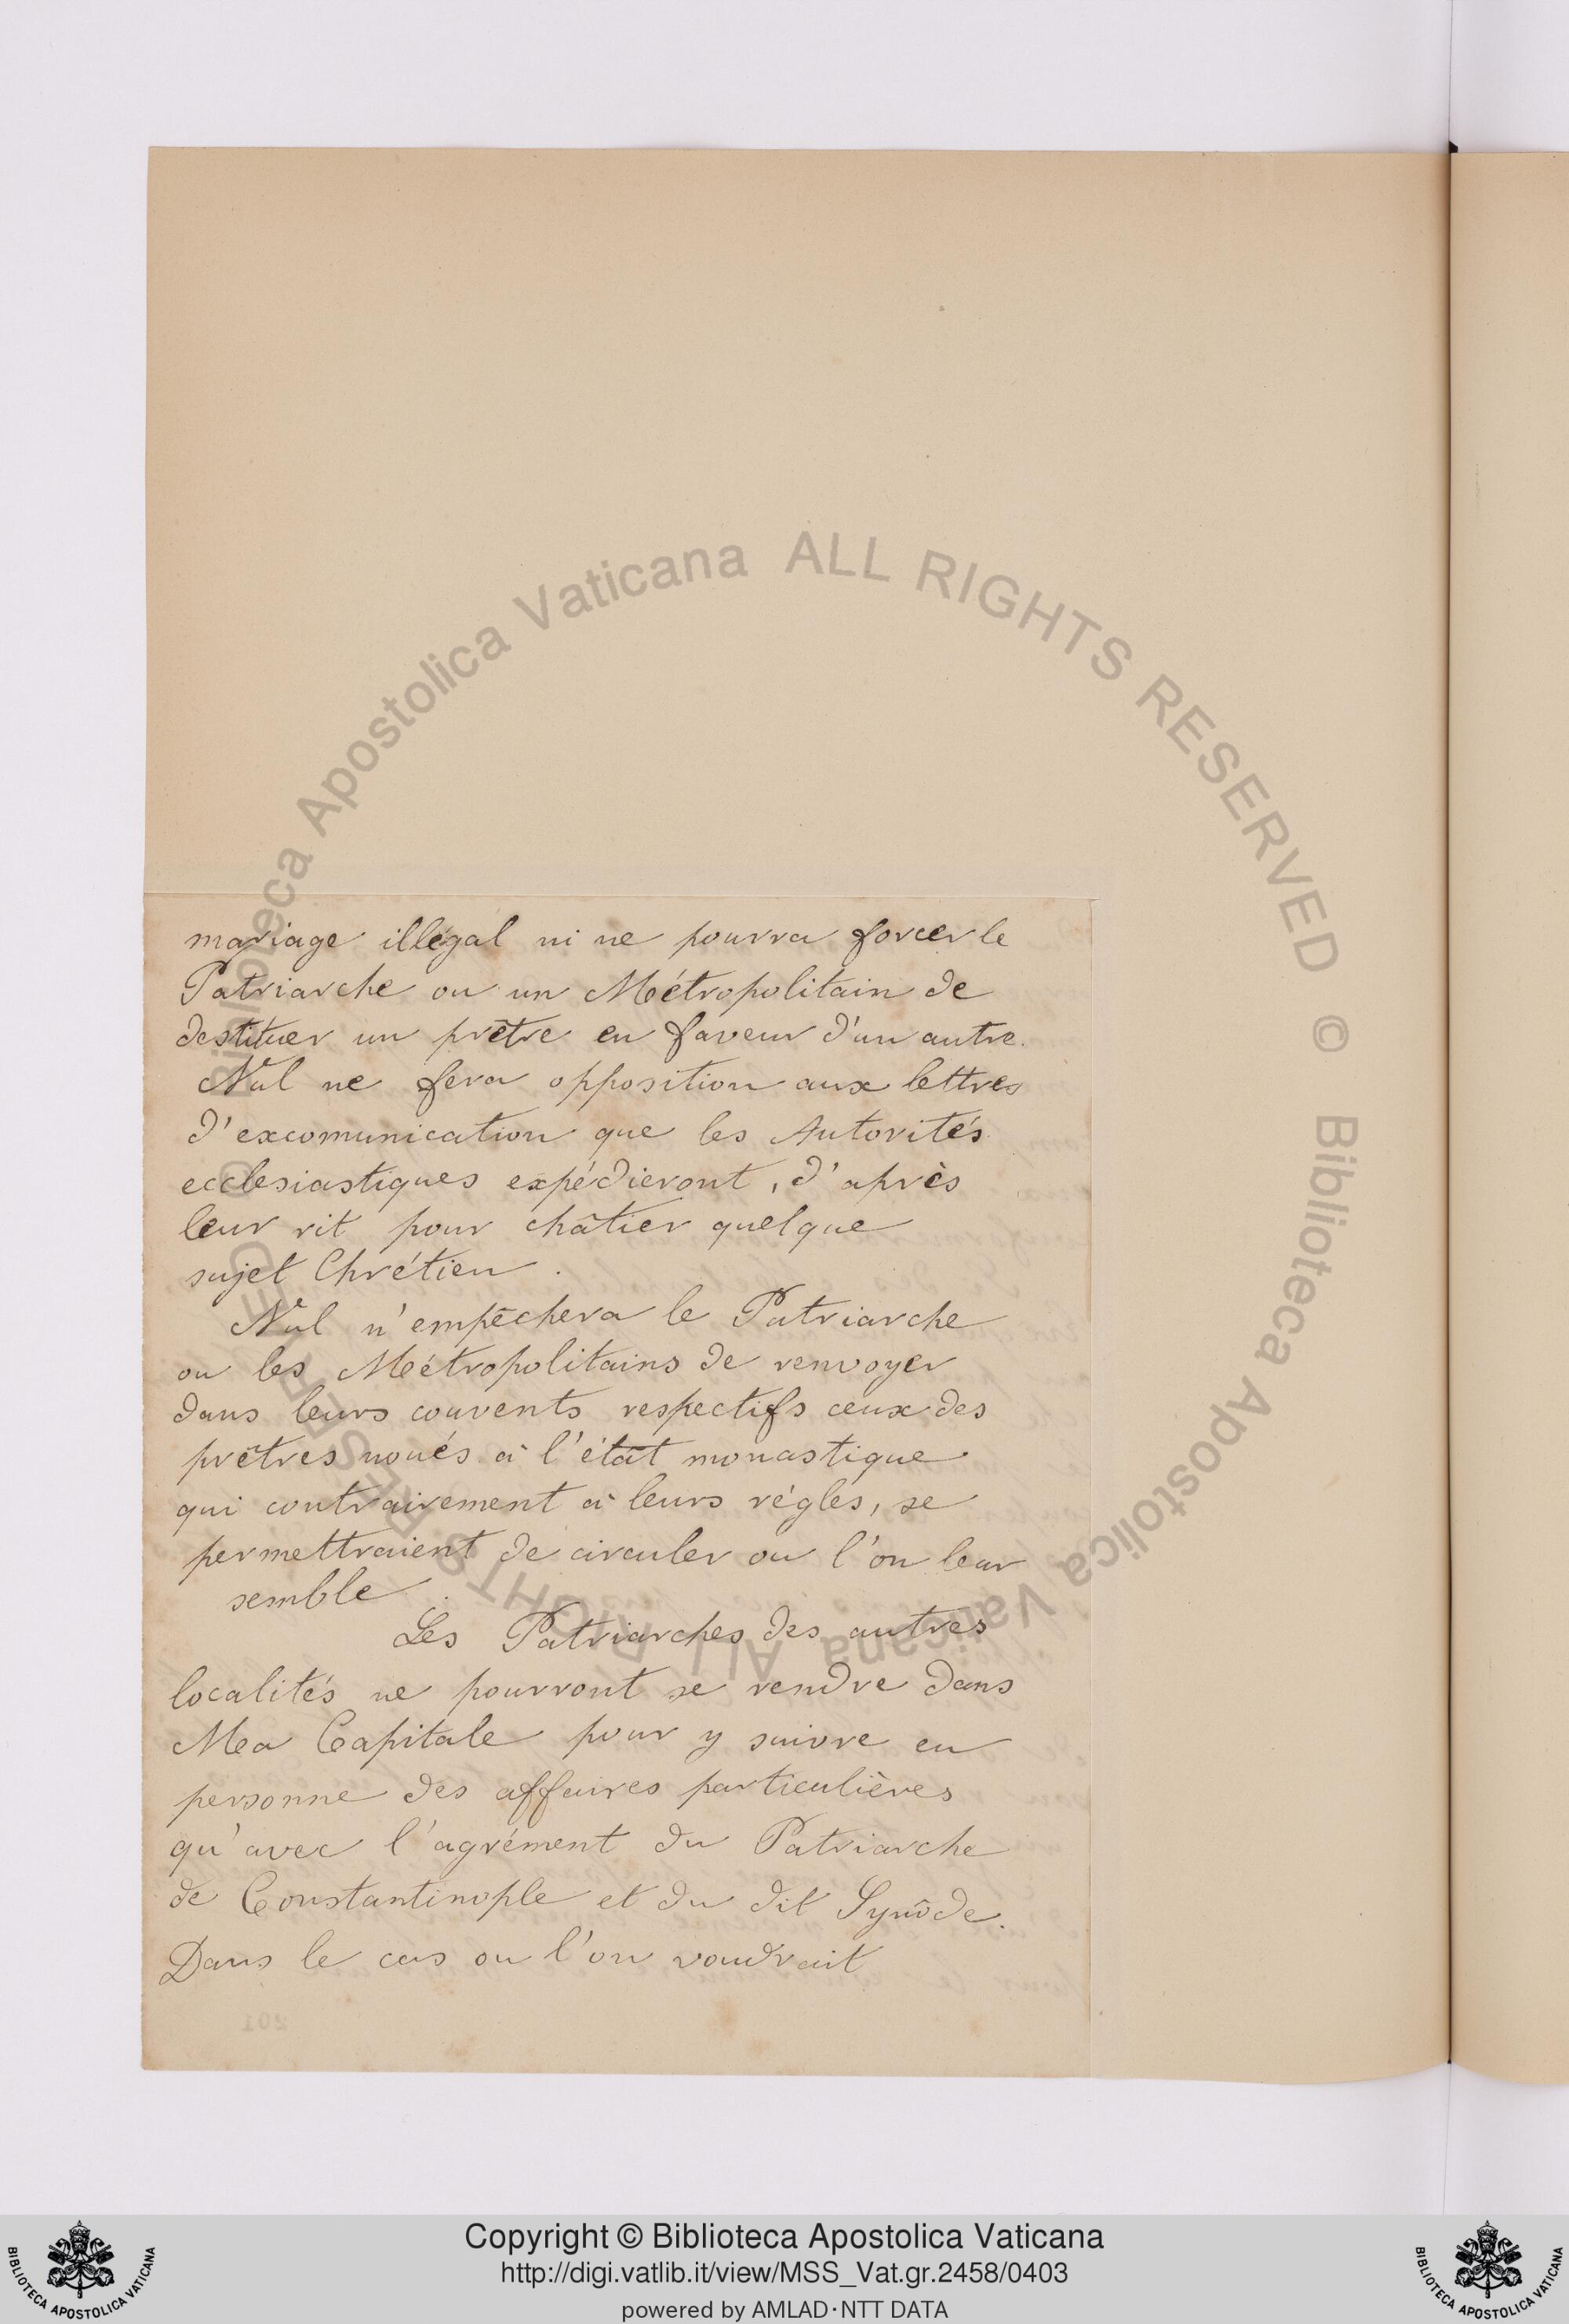 mariage illégal ni ne pourra forcer le
Patriarche ou un Métropolitain de
destituer un prêtre en faveur d'un autre.
Nul ne fera opposition aux lettres
d'excomunication que les Autorités
ecclesiastiques expédieront, d'après
leur rit pour châtier quelque
sujet Chrétien.
Nul n'empêchera le Patriarche
ou les Métropolitains de renvoyer
dans leurs couvents respectifs ceux des
prêtres voués à l'état monastique
qui contrairement à leurs règles, se
permettraient de circuler ou l'on leur
semble.
Les Patriarches des autres
localités ne pourront se rendre dans
Ma Capitale pour y suivre en
personne des affaires particulières
qu'avec l'agrément du Patriarche
de Constantinople et du dit Synode.
Dans le cas ou l'on voudrait
© Biblioteca Apostolica Vaticana ALL RIGHTS RESERVED
© Biblioteca Apostolica Vaticana ALL RIGHTS RESERVED
Copyright © Biblioteca Apostolica Vaticana
http://digi.vatlib.it/view/MSS_Vat.gr.2458/0403
powered by AMLAD·NTT DATA
BIBLIOTECA APOSTOLICA VATICANA
BIBLIOTECA APOSTOLICA VATICANA